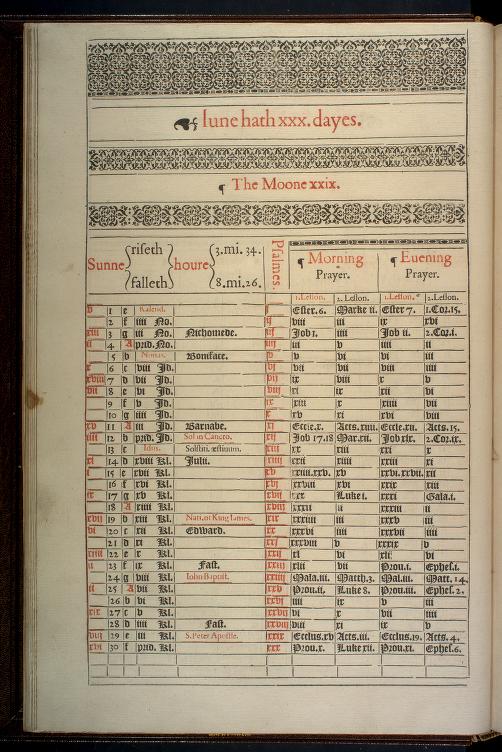 Iune hath xxx. dayes.
¶ The Moone xxix.
Sunne riseth falleth houre 3. mi. 34. 8. mi. 26. Psalmes. ¶ Morning Prayer. ¶ Euening Prayer.
1. Lesson. 2. Lesson. 1. Lesson. 2. Lesson.
v 1 e Kalend. i Ester. 6. Marke ii. Ester 7. 1. Coz. 15.
2 f iiii No. ij viii iii ix xvi
xiii 3 g iii No. Nichomede. iij Job i. iiii Job ii. 2. Coz. i.
ii 4 A prid. No. iiij iii v iiii ii
5 b Nonas. Boniface. v v vi vi iii
x 6 c viii Id. vj vii vii viii iiii
xviii 7 d vii Id. vij ix viii x v
vii 8 e vi Id. viij xi ix xii vi
9 f v Id. ix xiii x xiiii vii
10 g iiii Id. x xv xi xvi viii
xv 11 A iii Id. Barnabe. xj Eccle. x. Acts. xiiii. Eccle. xii. Acts. 15.
iiii 12 b prid. Id. Sol in Cancro. xij Job 17.18 Mar. xii. Job xix. 2. Coz. ix.
13 c Idus. Solstiti. æstiuum. xiij xx xiii xxi x
xi 14 d xviii Kl. Julii. xiiij xxii xiiii xxiii xi
i 15 e xvii Kl. xv xxiiii. xxv. xv xxvi. xxvii. xii
16 f xvi Kl. xvj xxviii xvi xxix xiii
ix 17 g xv Kl. xvij xxx Luke i. xxxi Gala. i.
18 A xiiii Kl. xviij xxxii ii xxxiii ii
xvii 19 b xiii Kl. Nati. of King Iames. xix xxxiiii iii xxxv iii
vi 20 c xii Kl. Edward. xx xxxvi iiii xxxvii iiii
21 d xi Kl. xxj xxxviii v xxxix v
xiiii 22 e x Kl. xxij xl vi xli vi
iii 23 f ix Kl. Fast. xxiij xlii vii Prou. i. Ephes. i.
24 g viii Kl. Iohn Baptist. xxiiij Mala. iii. Matth. 3. Mal. iii. Matt. 14.
xi 25 A vii Kl. xxv Prou. ii. Luke 8. Prou. iii. Ephes. 2.
26 b vi Kl. xxvj iiii ix v iii
xix 27 c v Kl. xxvij vi x vii iiii
28 d iiii Kl. Fast. xxviij viii xi ix v
viii 29 e iii Kl. S. Peter Apostle. xxix Ecclus. xv Acts. iii. Ecclus. 19. Acts. 4.
xvi 30 f prid. Kl. xxx Prou. x. Luke xii. Prou. xi. Ephes. 6.